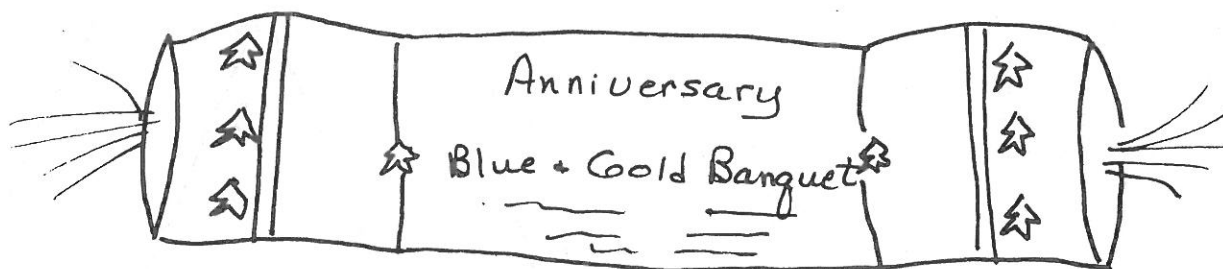 Anniversary
Blue + Gold Banquet